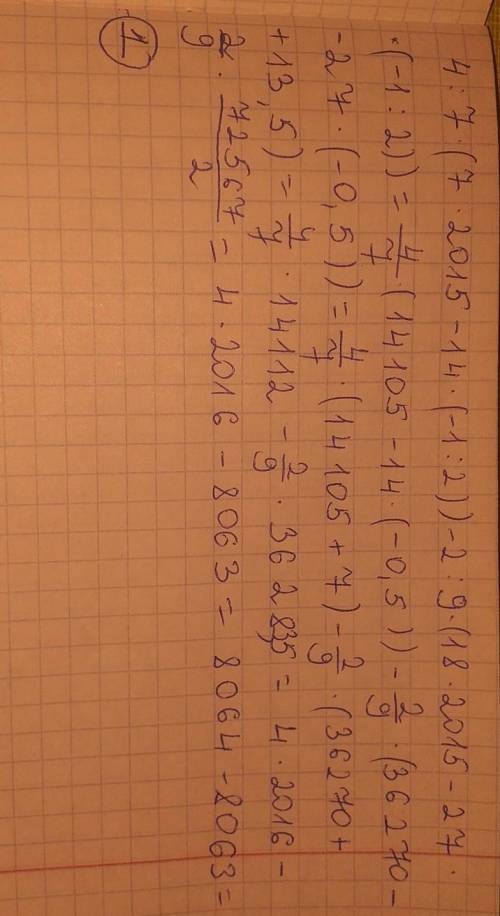 4:7·(7·2015-14·(-1:2))-2:9·(18·2015-27·
·(-1:2))=4/7·(14105-14·(-0,5))-2/9·(36270-
-27·(-0,5))=4/7·(14105+7)-2/9·(36270+
+13,5)=4/7·14112-2/9·36283,5=4·2016-
2/9·72567/2=4·2016-8063=8064-8063=
1